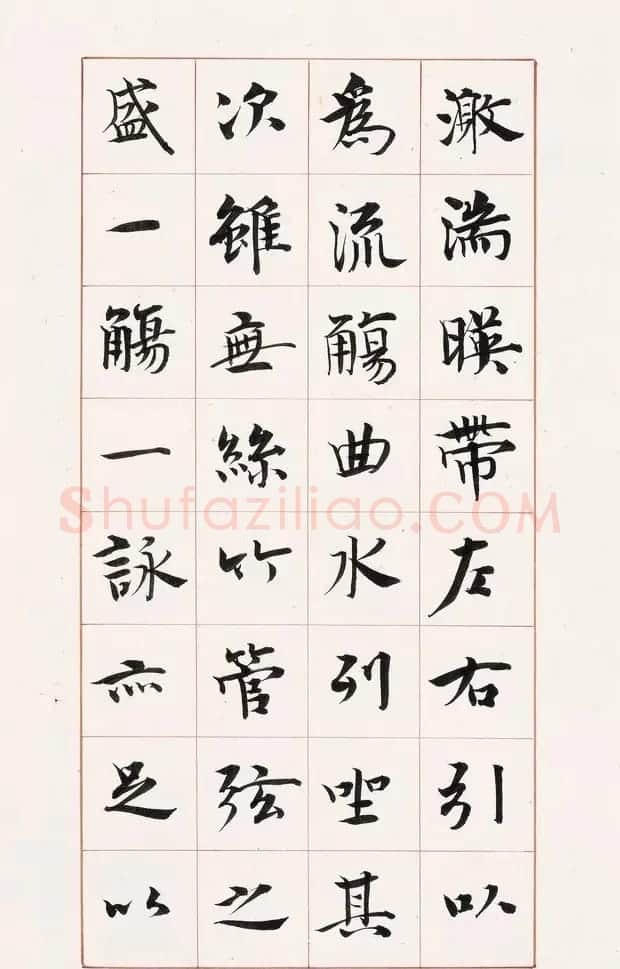 激湍暎帶左右引以
為流觴曲水列坐其
次雖無絲竹管弦之
盛一觴一詠亦足以
Shufaziliao.COM